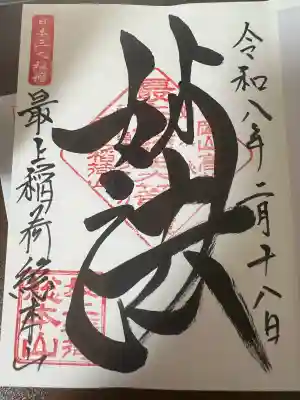 令和八年二月十八日
妙法
日本三大稲荷
最上稲荷総本山